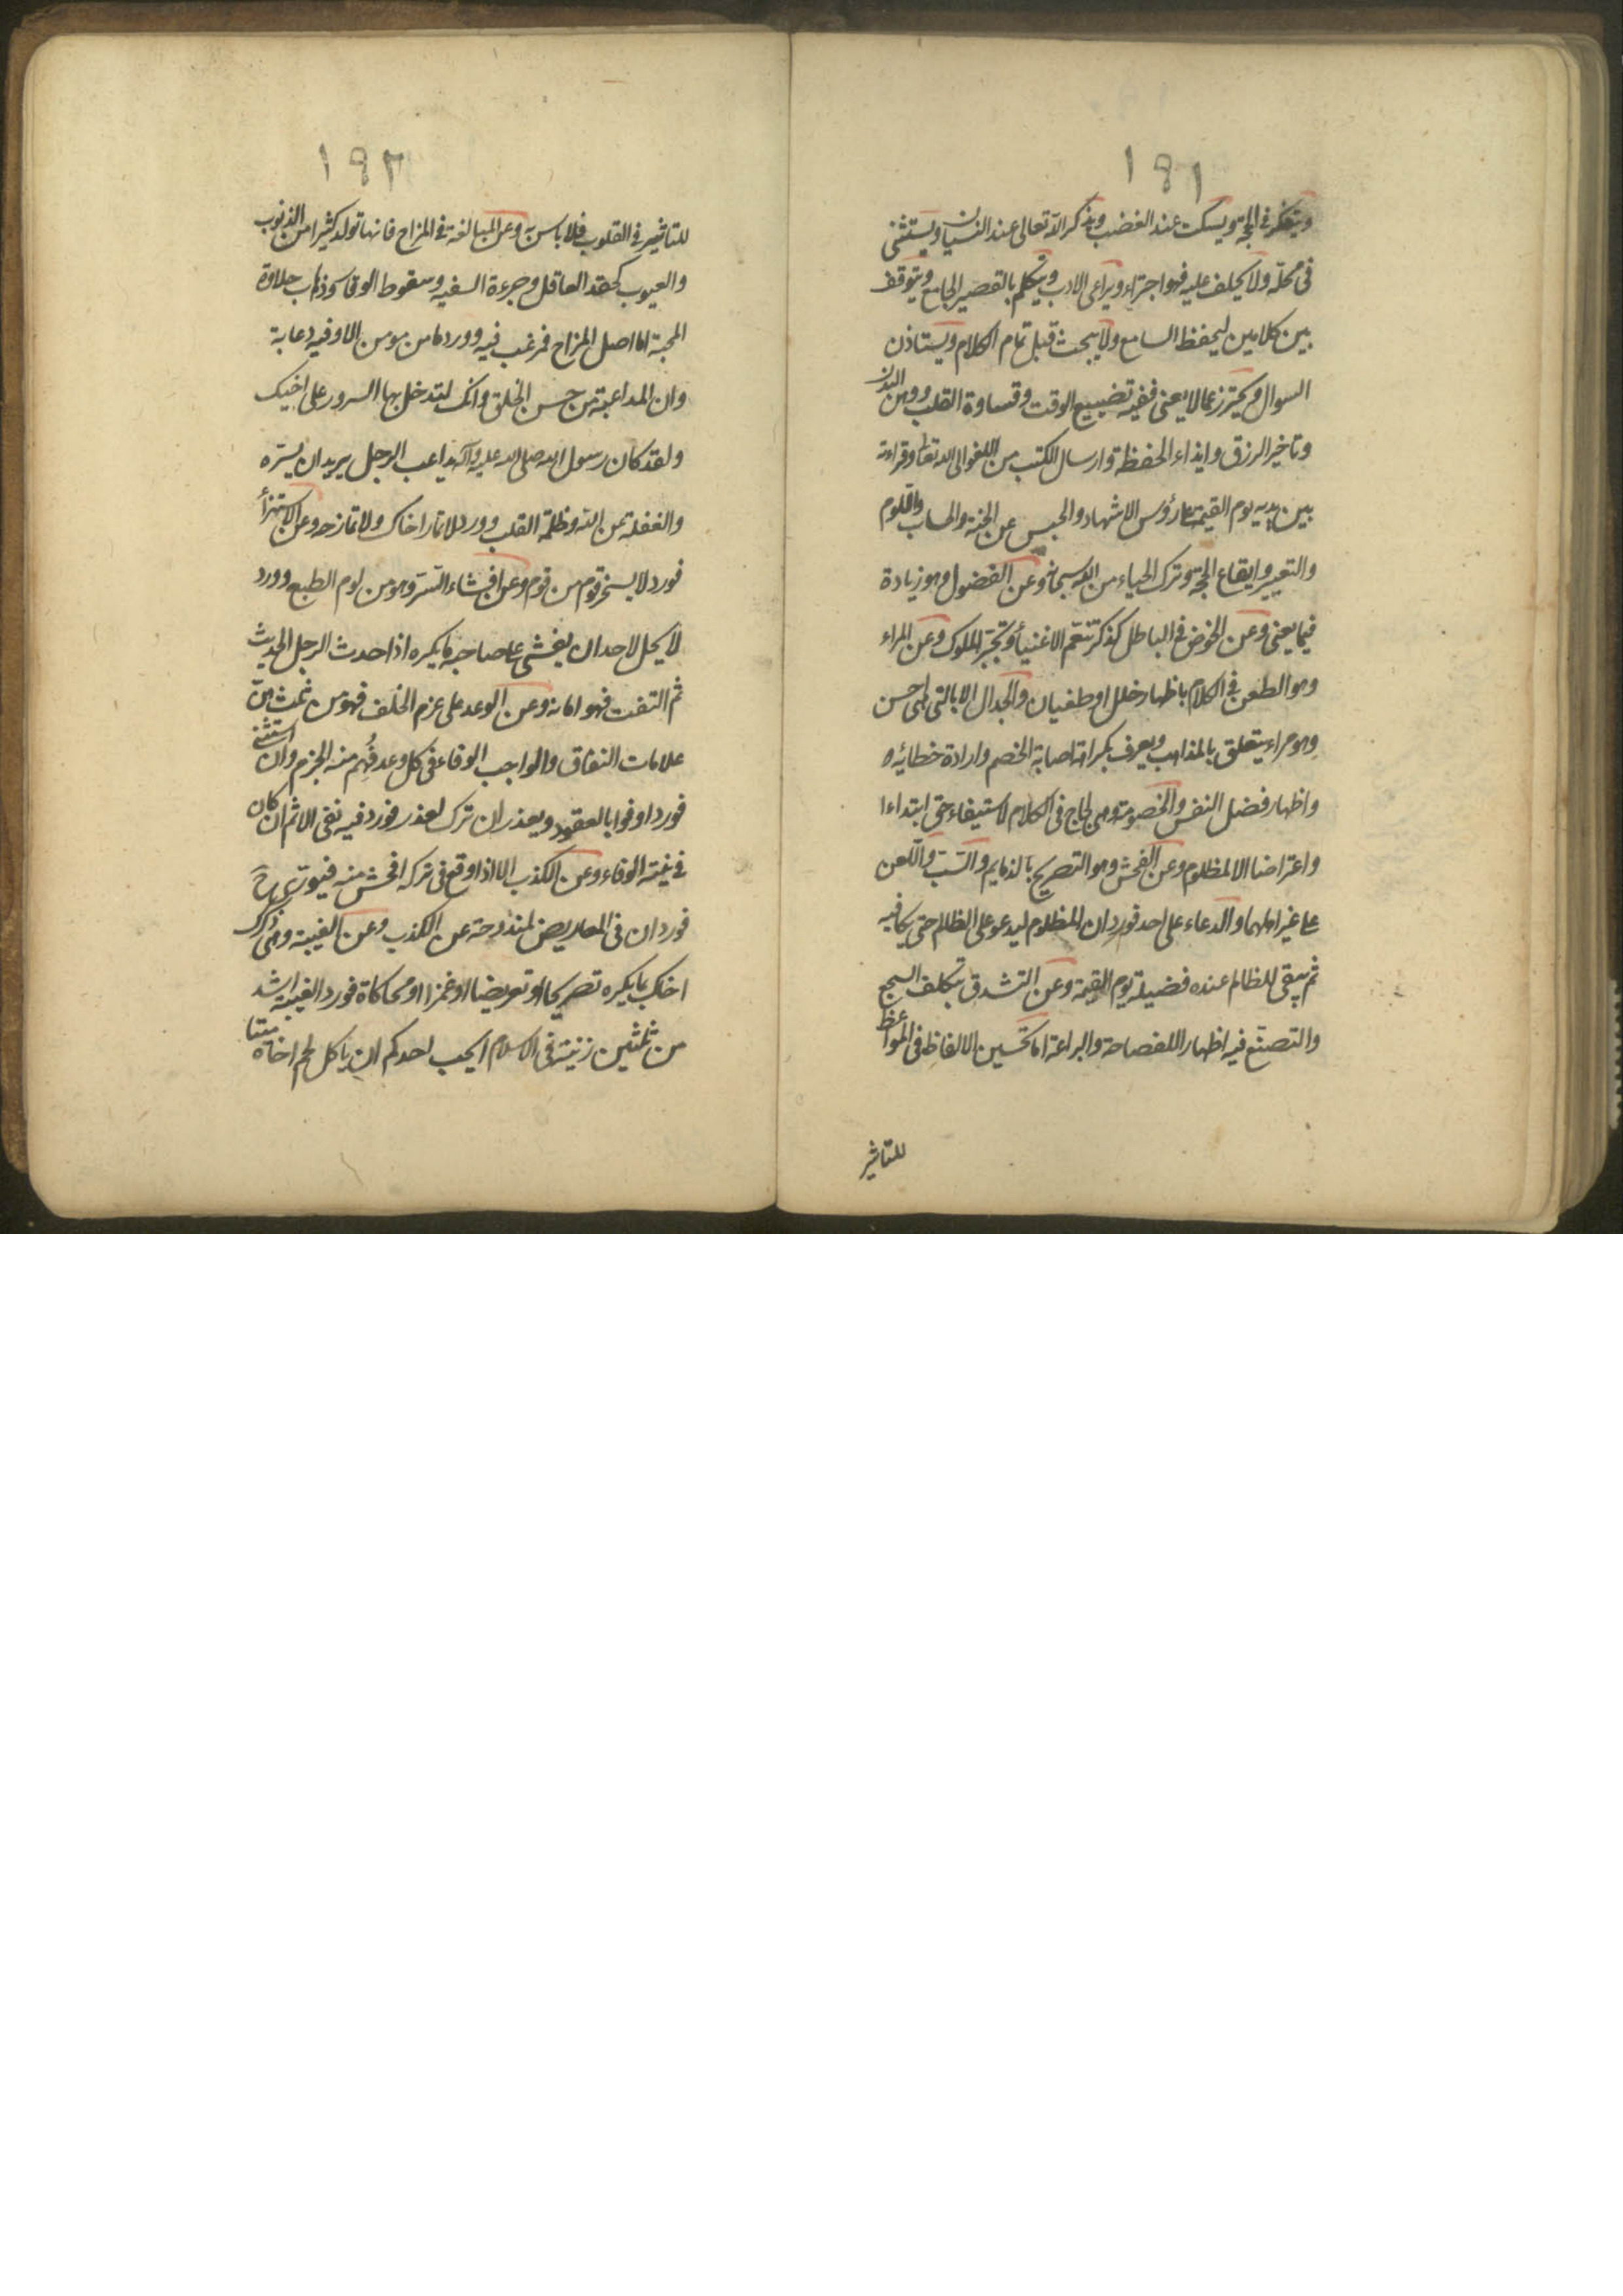 ١٩١
ويتفكر في الحجة ويسكت عند الغضب ويذكر الله تعالى عند النسيان ويستثنى
في محله ولا يحلف عليه فهو اجتراء ويراعى الادب ويتكلم بالقصير الجامع ويتوقف
بين كلامين ليحفظ السامع ولا يبحث قبل تمام الكلام ويستاذن
السوال ويحترز عما لا يعنى ففيه تضييع الوقت وقساوة القلب ووهن البدن
وتاخير الرزق وايذاء الحفظة وارسال الكتب من اللغو الى الله تعالى وقراءته
بين يديه يوم القيمة على رؤس الاشهاد والحبس عن الجنة والحساب واللوم
والتعيير وايقاع الحجة وترك الحياء من الله سبحانه وعن الفضول وهو زيادة
فيما يعنى وعن الخوض في الباطل كذكر تنعم الاغنياء وتجبر الملوك وعن المراء
وهو الطعن في الكلام باظهار خلل او طغيان والجدال الا بالتى هى احسن
وهو مراء يتعلق بالمذاهب ويعرف بكراهة اصابة الخصم وارادة خطائه
واظهار فضل النفس والخصومة وهى لجاج في الكلام لاستيفاء حق ابتداءا
واعتراضا الا لمظلوم وعن الفحش وهو التصريح بالذمايم والسب واللعن
على غير اهلهما والدعاء على احد فورد ان المظلوم ليدعو على الظالم حتى يكافيه
ثم يبقى للظالم عنده فضيلة يوم القيمة وعن التشدق بتكلف السجع
والتصنع فيه اظهارا للفصاحة والبراعة اما تحسين الالفاظ في المواعظ
للتاثير
١٩٢
للتاثير في القلوب فلا باس به وعن المبالغة في المزاح فانها تولد كثيرا من الذنوب
والعيوب كحقد العاقل وجرءة السفيه وسقوط الوقار وذهاب حلاوة
المحبة اما اصل المزاح فمرغب فيه وورد ما من مومن الا وفيه دعابة
وان المداعبة من حسن الخلق وانك لتدخل بها السرور على اخيك
ولقد كان رسول الله صلى الله عليه وآله يداعب الرجل يريد ان يسره
والغفلة عن الله وظلمة القلب وورد لا تمار اخاك ولا تمازحه وعن الاستهزأ
فورد لا يسخر قوم من قوم وعن افشاء السر وهو من لوم الطبع وورد
لا يحل لاحد ان يفشى على صاحبه ما يكره اذا حدث الرجل الحديث
ثم التفت فهو امانة وعن الوعد على عزم الخلف فهو من ثلث هن
علامات النفاق والواجب الوفاء في كل وعد فُهِم منه الجزم وان استثنى
فورد اوفوا بالعقود ويعذر ان ترك لعذر فورد فيه نفى الاثم ان كان
في نيته الوفاء وعن الكذب الا اذا وقع في تركه افحش منه فيورى
فورد ان في المعاريض لمندوحة عن الكذب وعن الغيبة وهى ذكرك
اخك بما يكره تصريحا او تعريضا او غمزا او محاكاة فورد الغيبة اشد
من ثلثين زنية في الاسلام ايحب احدكم ان ياكل لحم اخاه ميتا